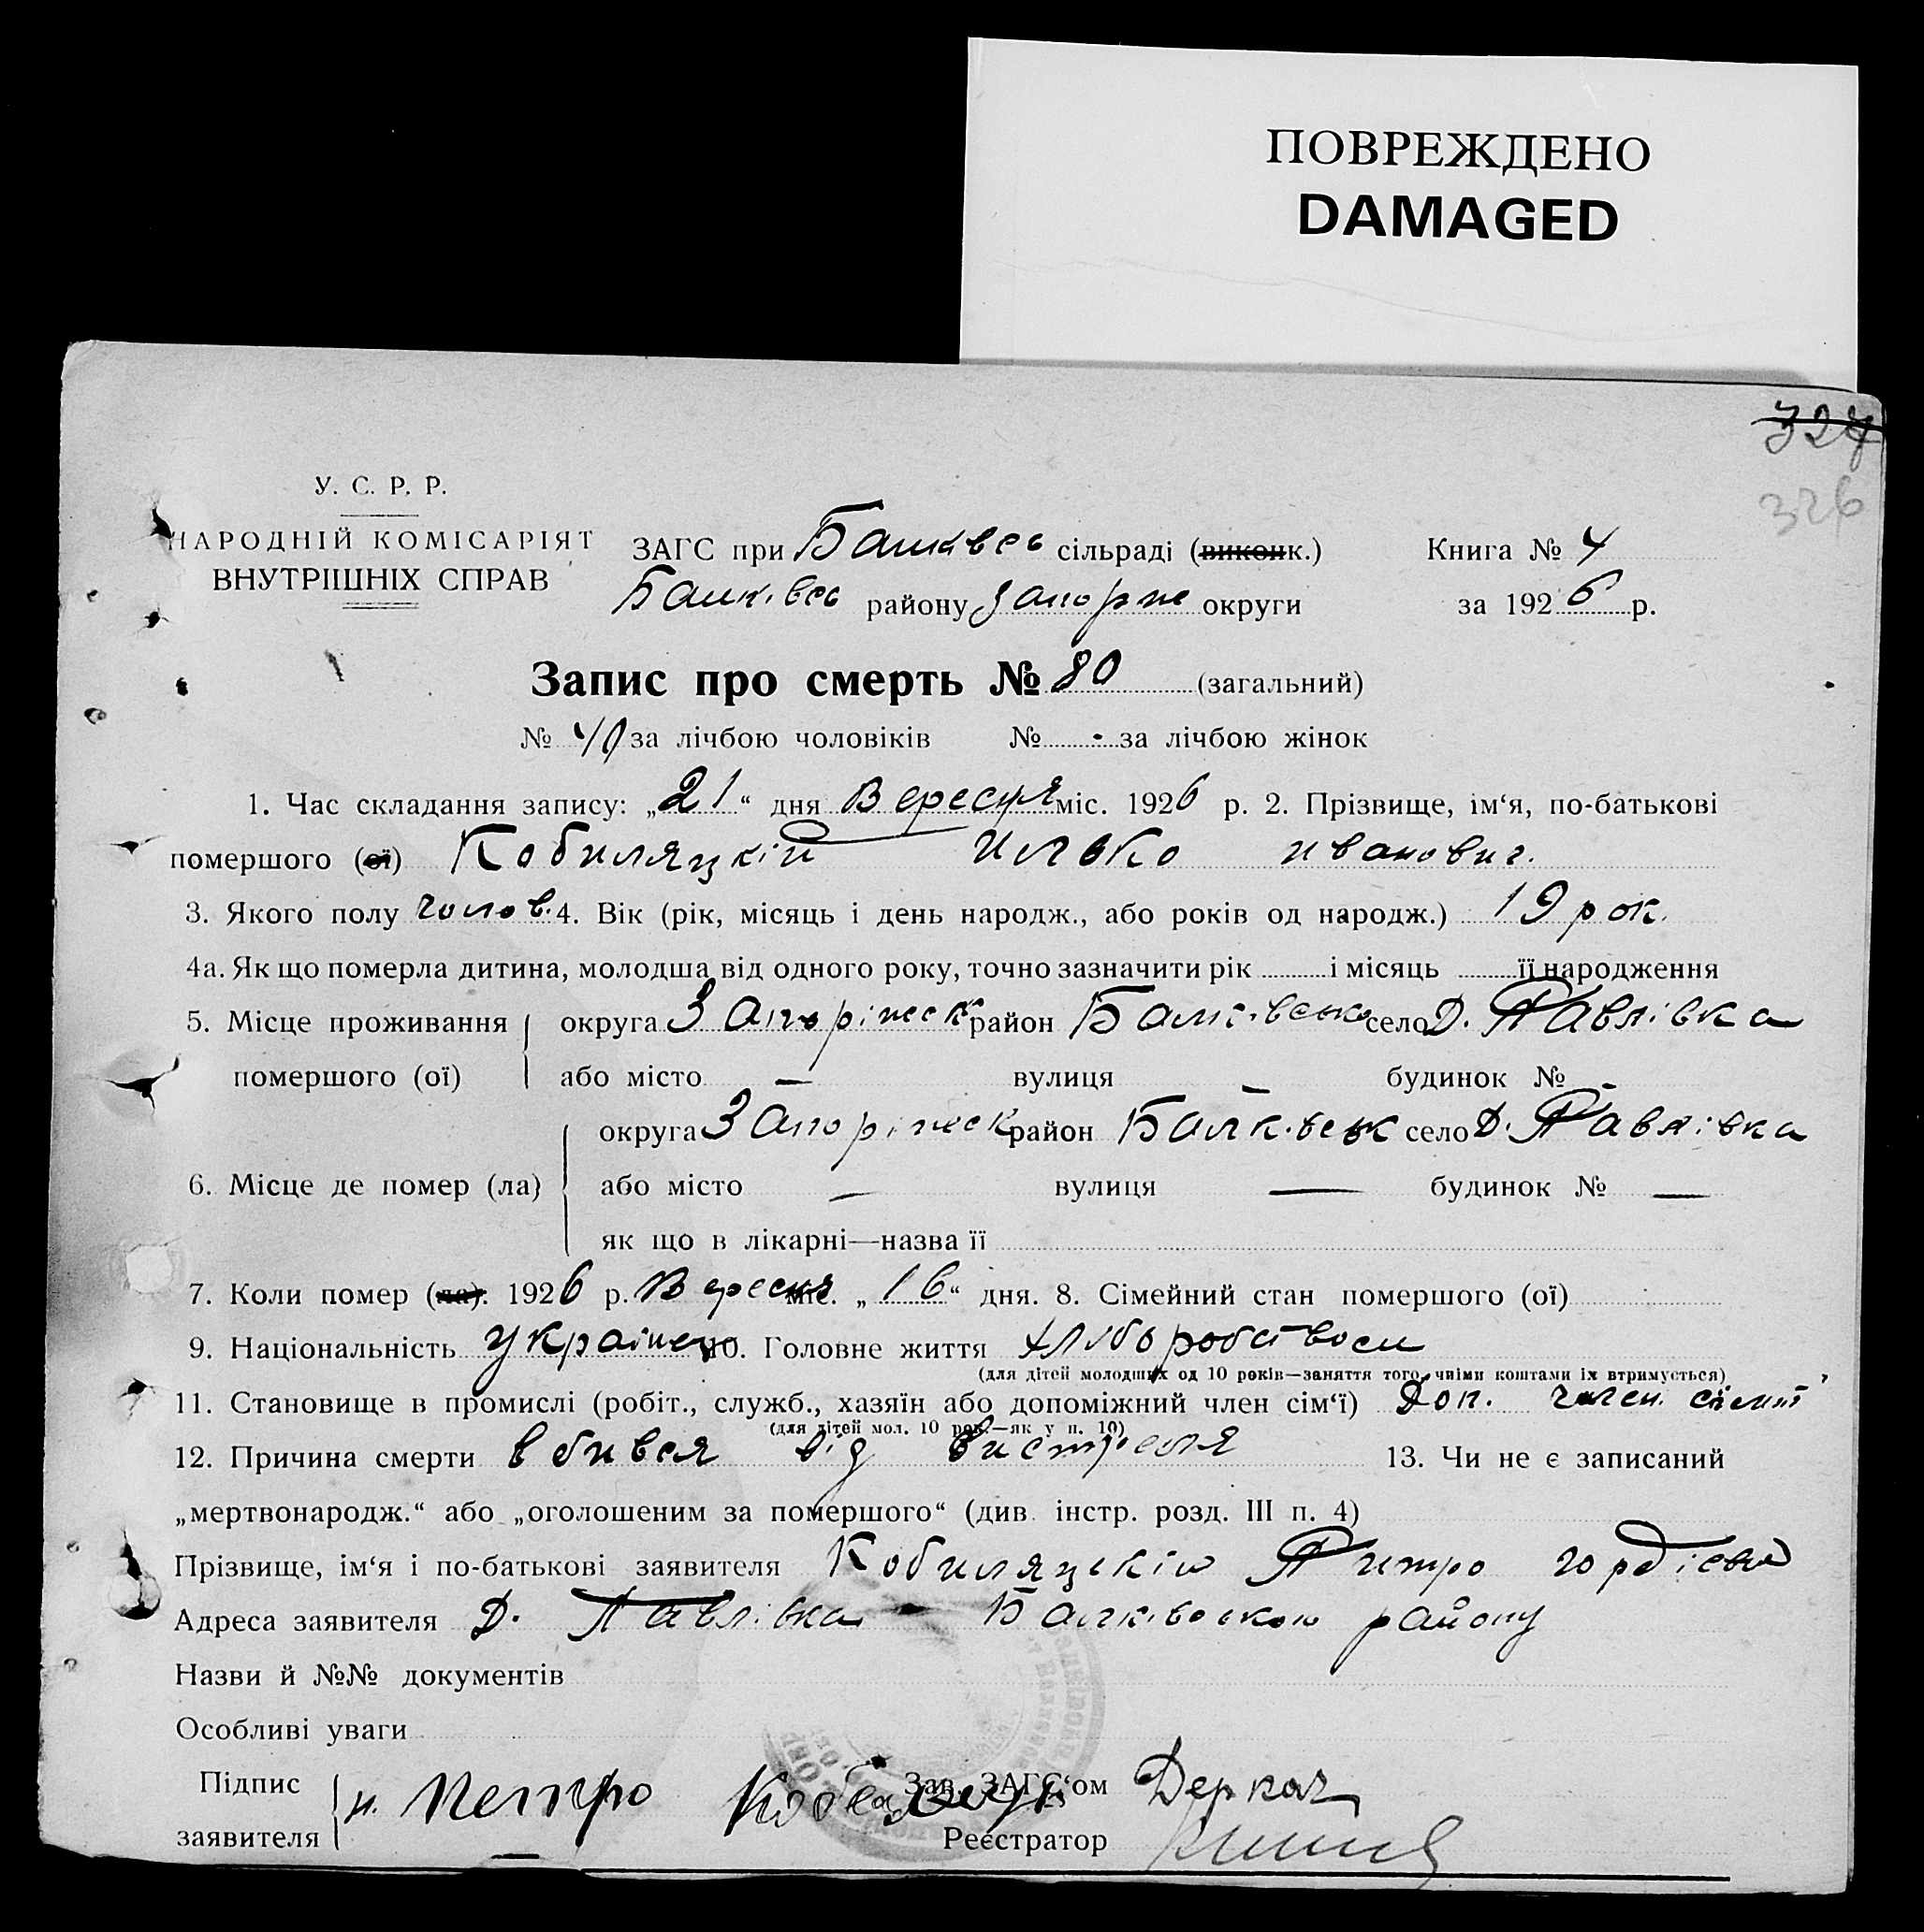 ПОВРЕЖДЕНО
DAMAGED
327
326
У. С. Р. Р.
НАРОДНІЙ КОМІСАРІЯТ
ВНУТРІШНІХ СПРАВ
ЗАГС при Балківсь сільраді (виконк.) Книга № 4
Балківсь району Запоріж округи за 1926 р.
Запис про смерть № 80 (загальний)
№ 40 за лічбою чоловіків № - за лічбою жінок
1. Час складання запису: „21“ дня Вересня міс. 1926 р. 2. Прізвище, ім‘я, по-батькові
помершого (ої) Кобиляцкій Илько иванович.
3. Якого полу чолов. 4. Вік (рік, місяць і день народж., або років од народж.) 19 рок.
4а. Як що померла дитина, молодша від одного року, точно зазначити рік і місяць її народження
5. Місце проживання округа Запоріжськ район Балківсько село Д. Павлівка
помершого (ої) або місто — вулиця — будинок № -
округа Запоріжск район Балківськ село Д. Павлівка
6. Місце де помер (ла) або місто — вулиця — будинок № —
як що в лікарні—назва її
7. Коли помер (ла). 1926 р. Вересня міс. „16“ дня. 8. Сімейний стан помершого (ої)
9. Національність українец 10. Головне життя хліборобство
(для дітей молодших од 10 років—заняття того, чиїми коштами їх втримується)
11. Становище в промислі (робіт., служб., хазяїн або допоміжний член сім‘ї) Доп. член. сімьї
(для дітей мол. 10 рок.—як у п. 10)
12. Причина смерти вбився від вистреля 13. Чи не є записаний
„мертвонародж.“ або „оголошеним за помершого“ (див. інстр. розд. III п. 4)
Прізвище, ім‘я і по-батькові заявителя Кобиляцькій Питро гордієви
Адреса заявителя Д. Павлівка Балківського району
Назви й №№ документів
Особливі уваги
Підпис Петро Зав. ЗАГС‘ом Деркач
заявителя Реєстратор